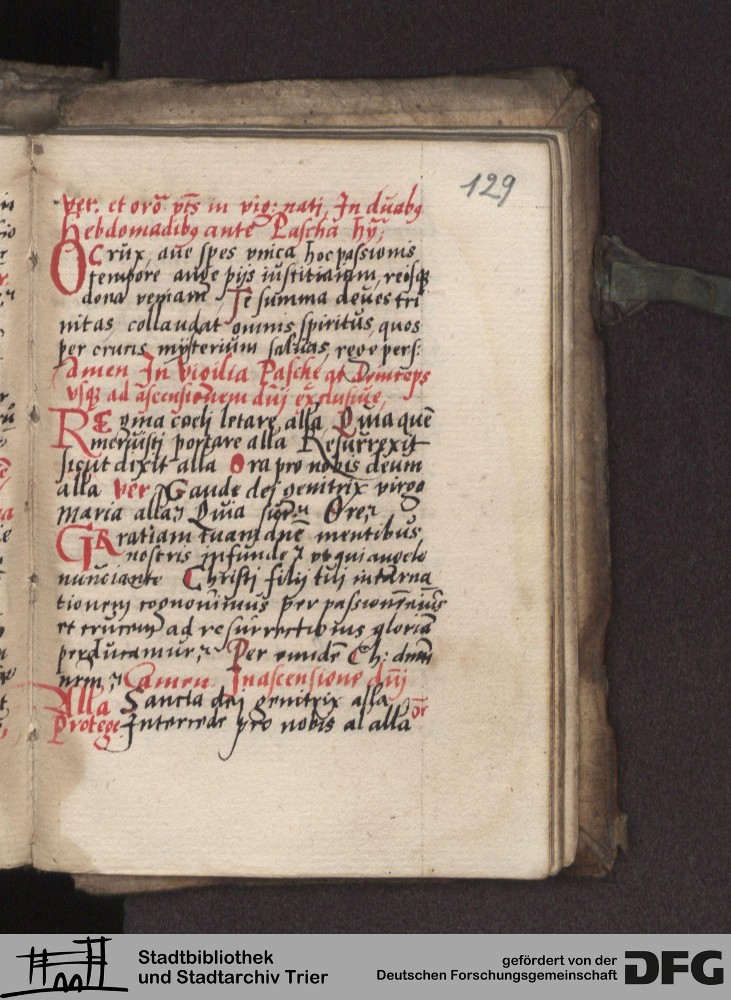 129
ver. et orō pn̄s in vig: nati, In duabꝫ
hebdomadibꝫ ante Pascha hӯ;
O Crux, aue spes vnica hoc passionis
tempore auge pijs iustitiam, reisqꝫ
dona veniam Te summa deus tri
nitas, collaudat omnis spiritus, quos
per crucis mysterium saluas, rege pers:
Amen In vigilia Pasche et Deinceps
vsqꝫ ad ascensionem dnj exclusiue,
REgina coeli letare, alla Quia quē
meruisti portare alla Resurrexit
sicut dixit alla Ora pro nobis deum
alla ver Gaude dej genitrix virgo
Maria alla Quia
GRratiam tuam dnē mentibus
nostris infunde ut qui angelo
nunciante Christj filij tuj incarna
tionem cognouimus per passionem eius
et crucem ad resurrectionis gloriā
perducamur, Per eundē Ch: dnm
nrm, Amen In ascensione dnj
Alla Sancta dej genitrix alla
Protege Intercede pro nobis al alla or
Stadtbibliothek
und Stadtarchiv Trier
gefördert von der
Deutschen Forschungsgemeinschaft
DFG